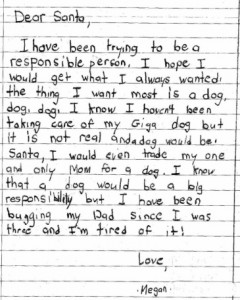 Dear Santa,
I have been trying to be a
responsible person. I hope I
would get what I always wanted.
the thing I want most is a dog,
dog, dog. I know I haven't been
taking care of my Giga dog but
it is not real and a dog would be.
Santa, I would even trade my one
and only Mom for a dog. I know
that a dog would be a big
responsibility but I have been
bugging my Dad since I was
three and I'm tired of it!
Love,
Megan